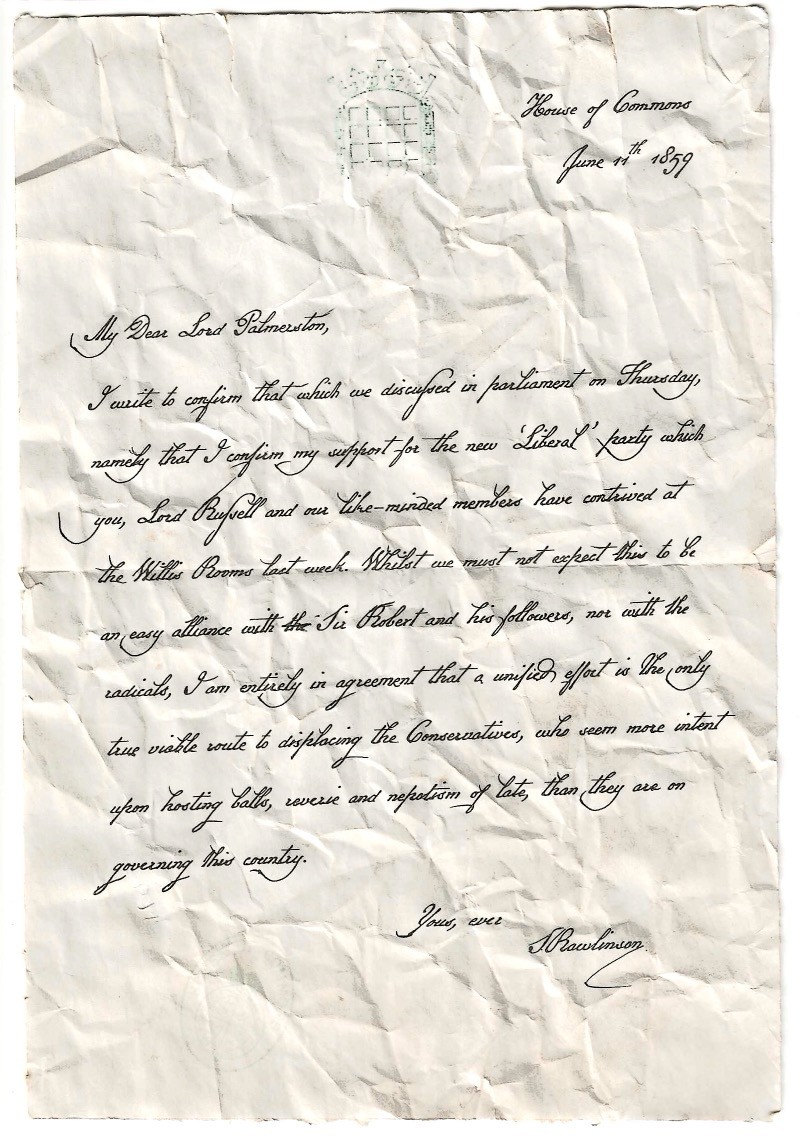 House of Commons
June 11th 1859
My Dear Lord Palmerston,
I write to confirm that which we discussed in parliament on Thursday,
namely that I confirm my support for the new 'Liberal' party which
you, Lord Russell and our like-minded members have contrived at
the Willis Rooms last week. Whilst we must not expect this to be
an easy alliance with the Sir Robert and his followers, nor with the
radicals, I am entirely in agreement that a unified effort is the only
true viable route to displacing the Conservatives, who seem more intent
upon hosting balls, reverie and nepotism of late, than they are on
governing this country.
Yours, ever
SRawlinson